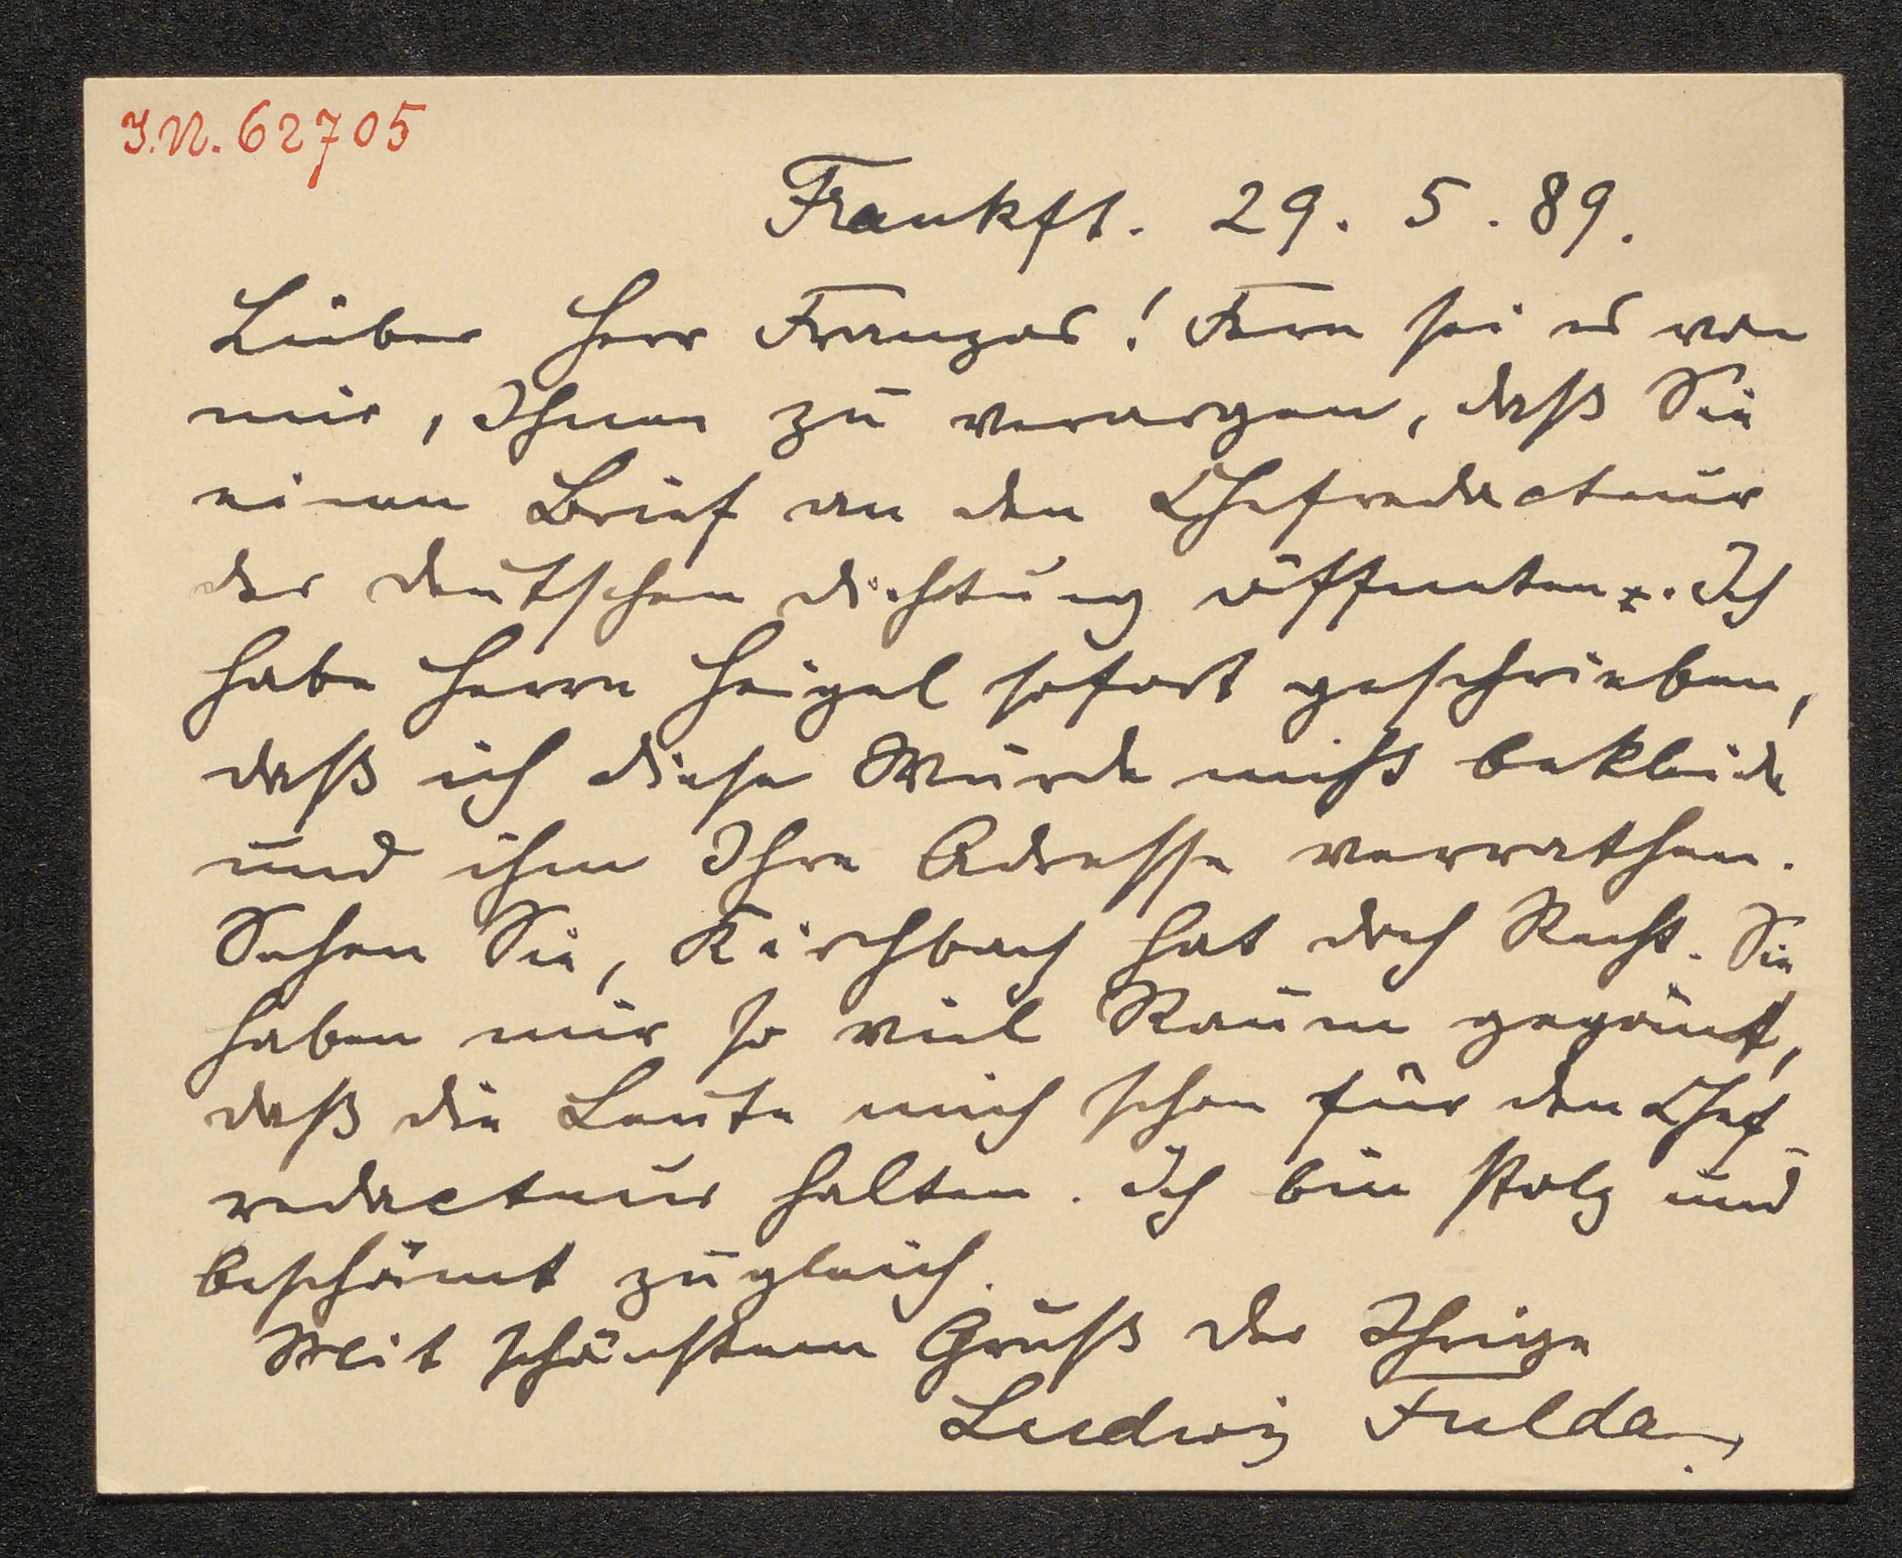 I.N. 62705
Frankft. 29. 5. 89.
Lieber Herr Franzos! Fern sei es von
mir, Ihnen zu verargen, daß Sie
einen Brief an den Chefredacteur
der deutschen Dichtung öffneten. Ich
habe Herrn Heigel sofort geschrieben,
daß ich diese Würde nicht bekleide
und ihm Ihre Adresse verrathen.
Sehen Sie, Kirchbach hat doch Recht. Sie
haben mir so viel Raum gegönt,
daß die Leute mich schon für den Chef-
redacteur halten. Ich bin stolz und
beschämt zugleich.
Mit schönstem Gruß der Ihrige
Ludwig Fulda.